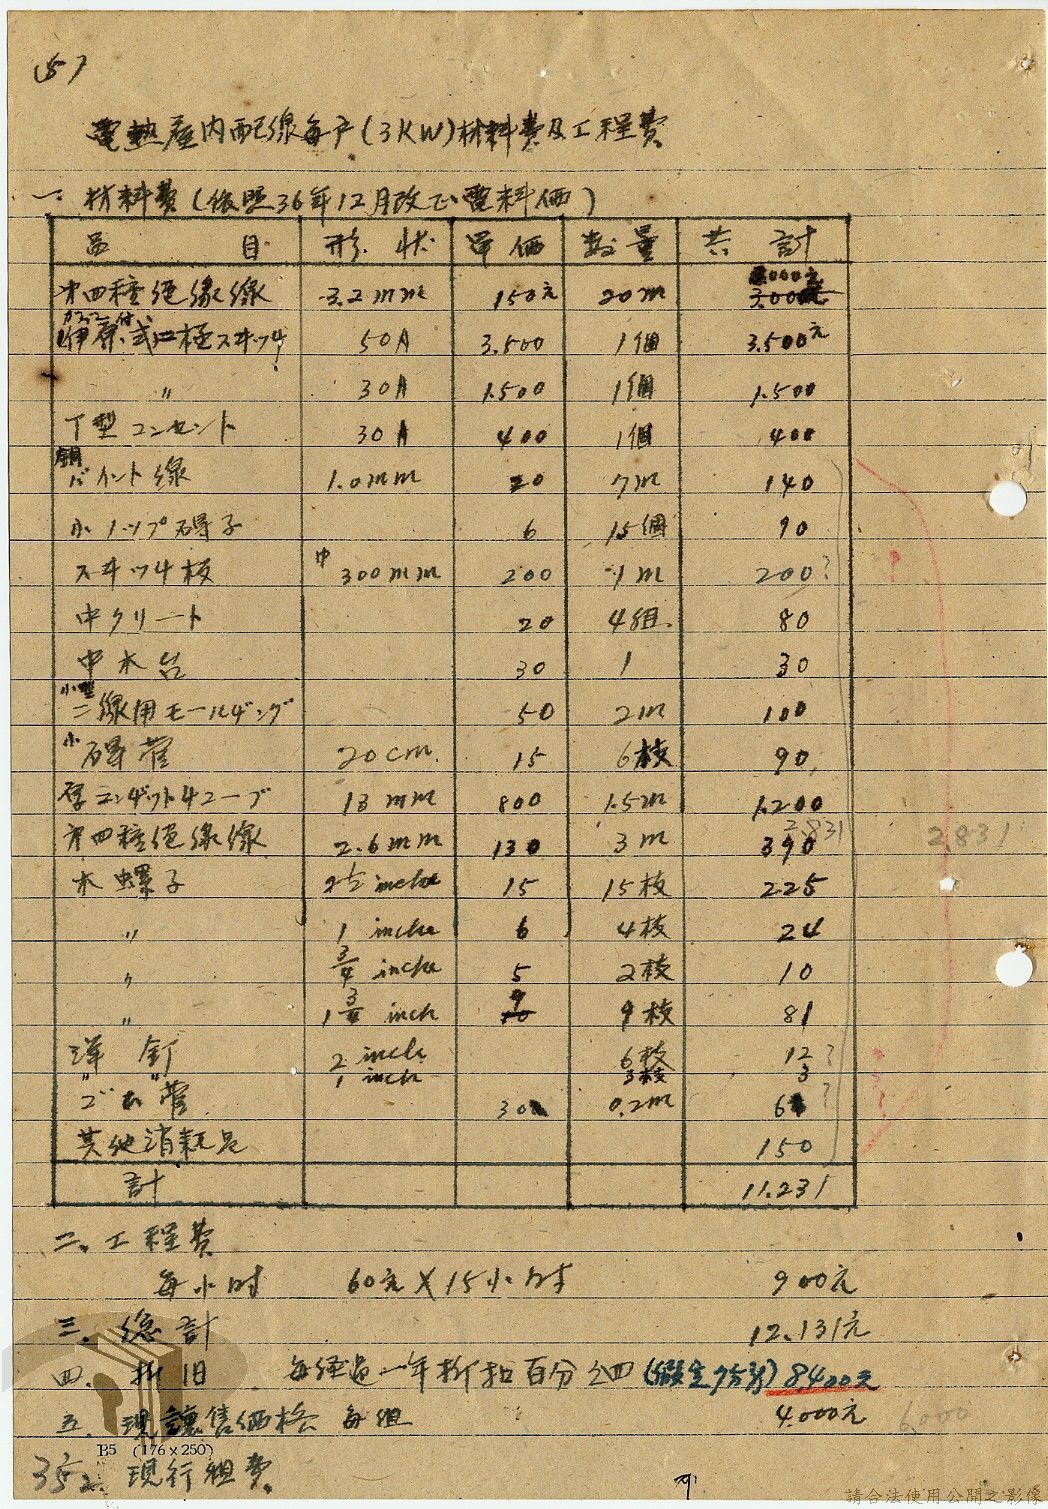 (5)
電熱屋内配線每戶(3KW)材料費及工程費
一. 材料費(依照36年12月改正電料価)
品 目 形 状 單 価 数 量 共 計
第四種绝緣線 3.2mm 150元 20m 3.000元
カバー付
伊原式二極スヰッチ 50A 3.500 1個 3.500元
〃 30A 1.500 1個 1.500
T型コンセント 30A 400 1個 400
銅バインド線 1.0mm 20 7m 140
小ノップ碍子 6 15個 90
スヰッチ板 巾300mm 200 1m 200?
中クリート 20 4組. 80
中木台 30 1 30
小型二線用モールヂング 50 2m 100
小碍管 20cm. 15 6枝 90
厚コンヂットチューブ 13mm 800 1.5m 1.200
2.831
第四種绝緣線 2.6mm 130 3m 390 2.831
木螺子 2½ inch 15 15枝 225
〃 1 inch 6 4枝 24
〃 3/4 inch 5 2枝 10
〃 1 3/4 inch 9 9枝 81
洋釘 2 inch 6枝 12?
〃 〃 1 inch 3枝 3
ゴム管 300 0.2m 60?
其他消耗品 150
計 11.231
二. 工程費
每小时 60元×15小时 900元
三. 總計 12.131元
四. 折旧 每經過一年折扣百分之四(假定7 8400元
五. 現讓售価格 每組 4.000元 6,000
B5 (176×250)
現行租費.
請合法使用公開之影像